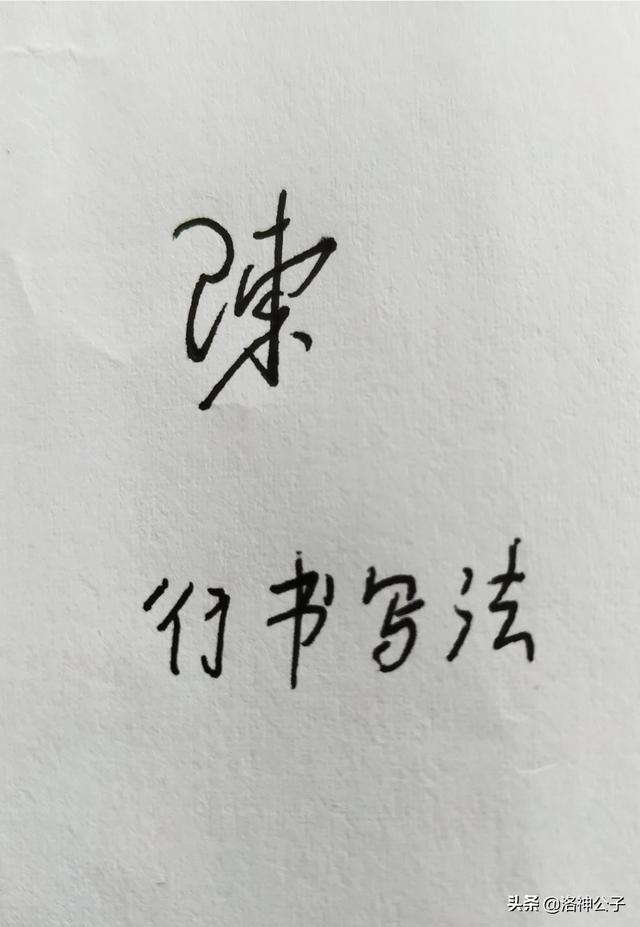 陳
行书写法
头条 @洛神公子